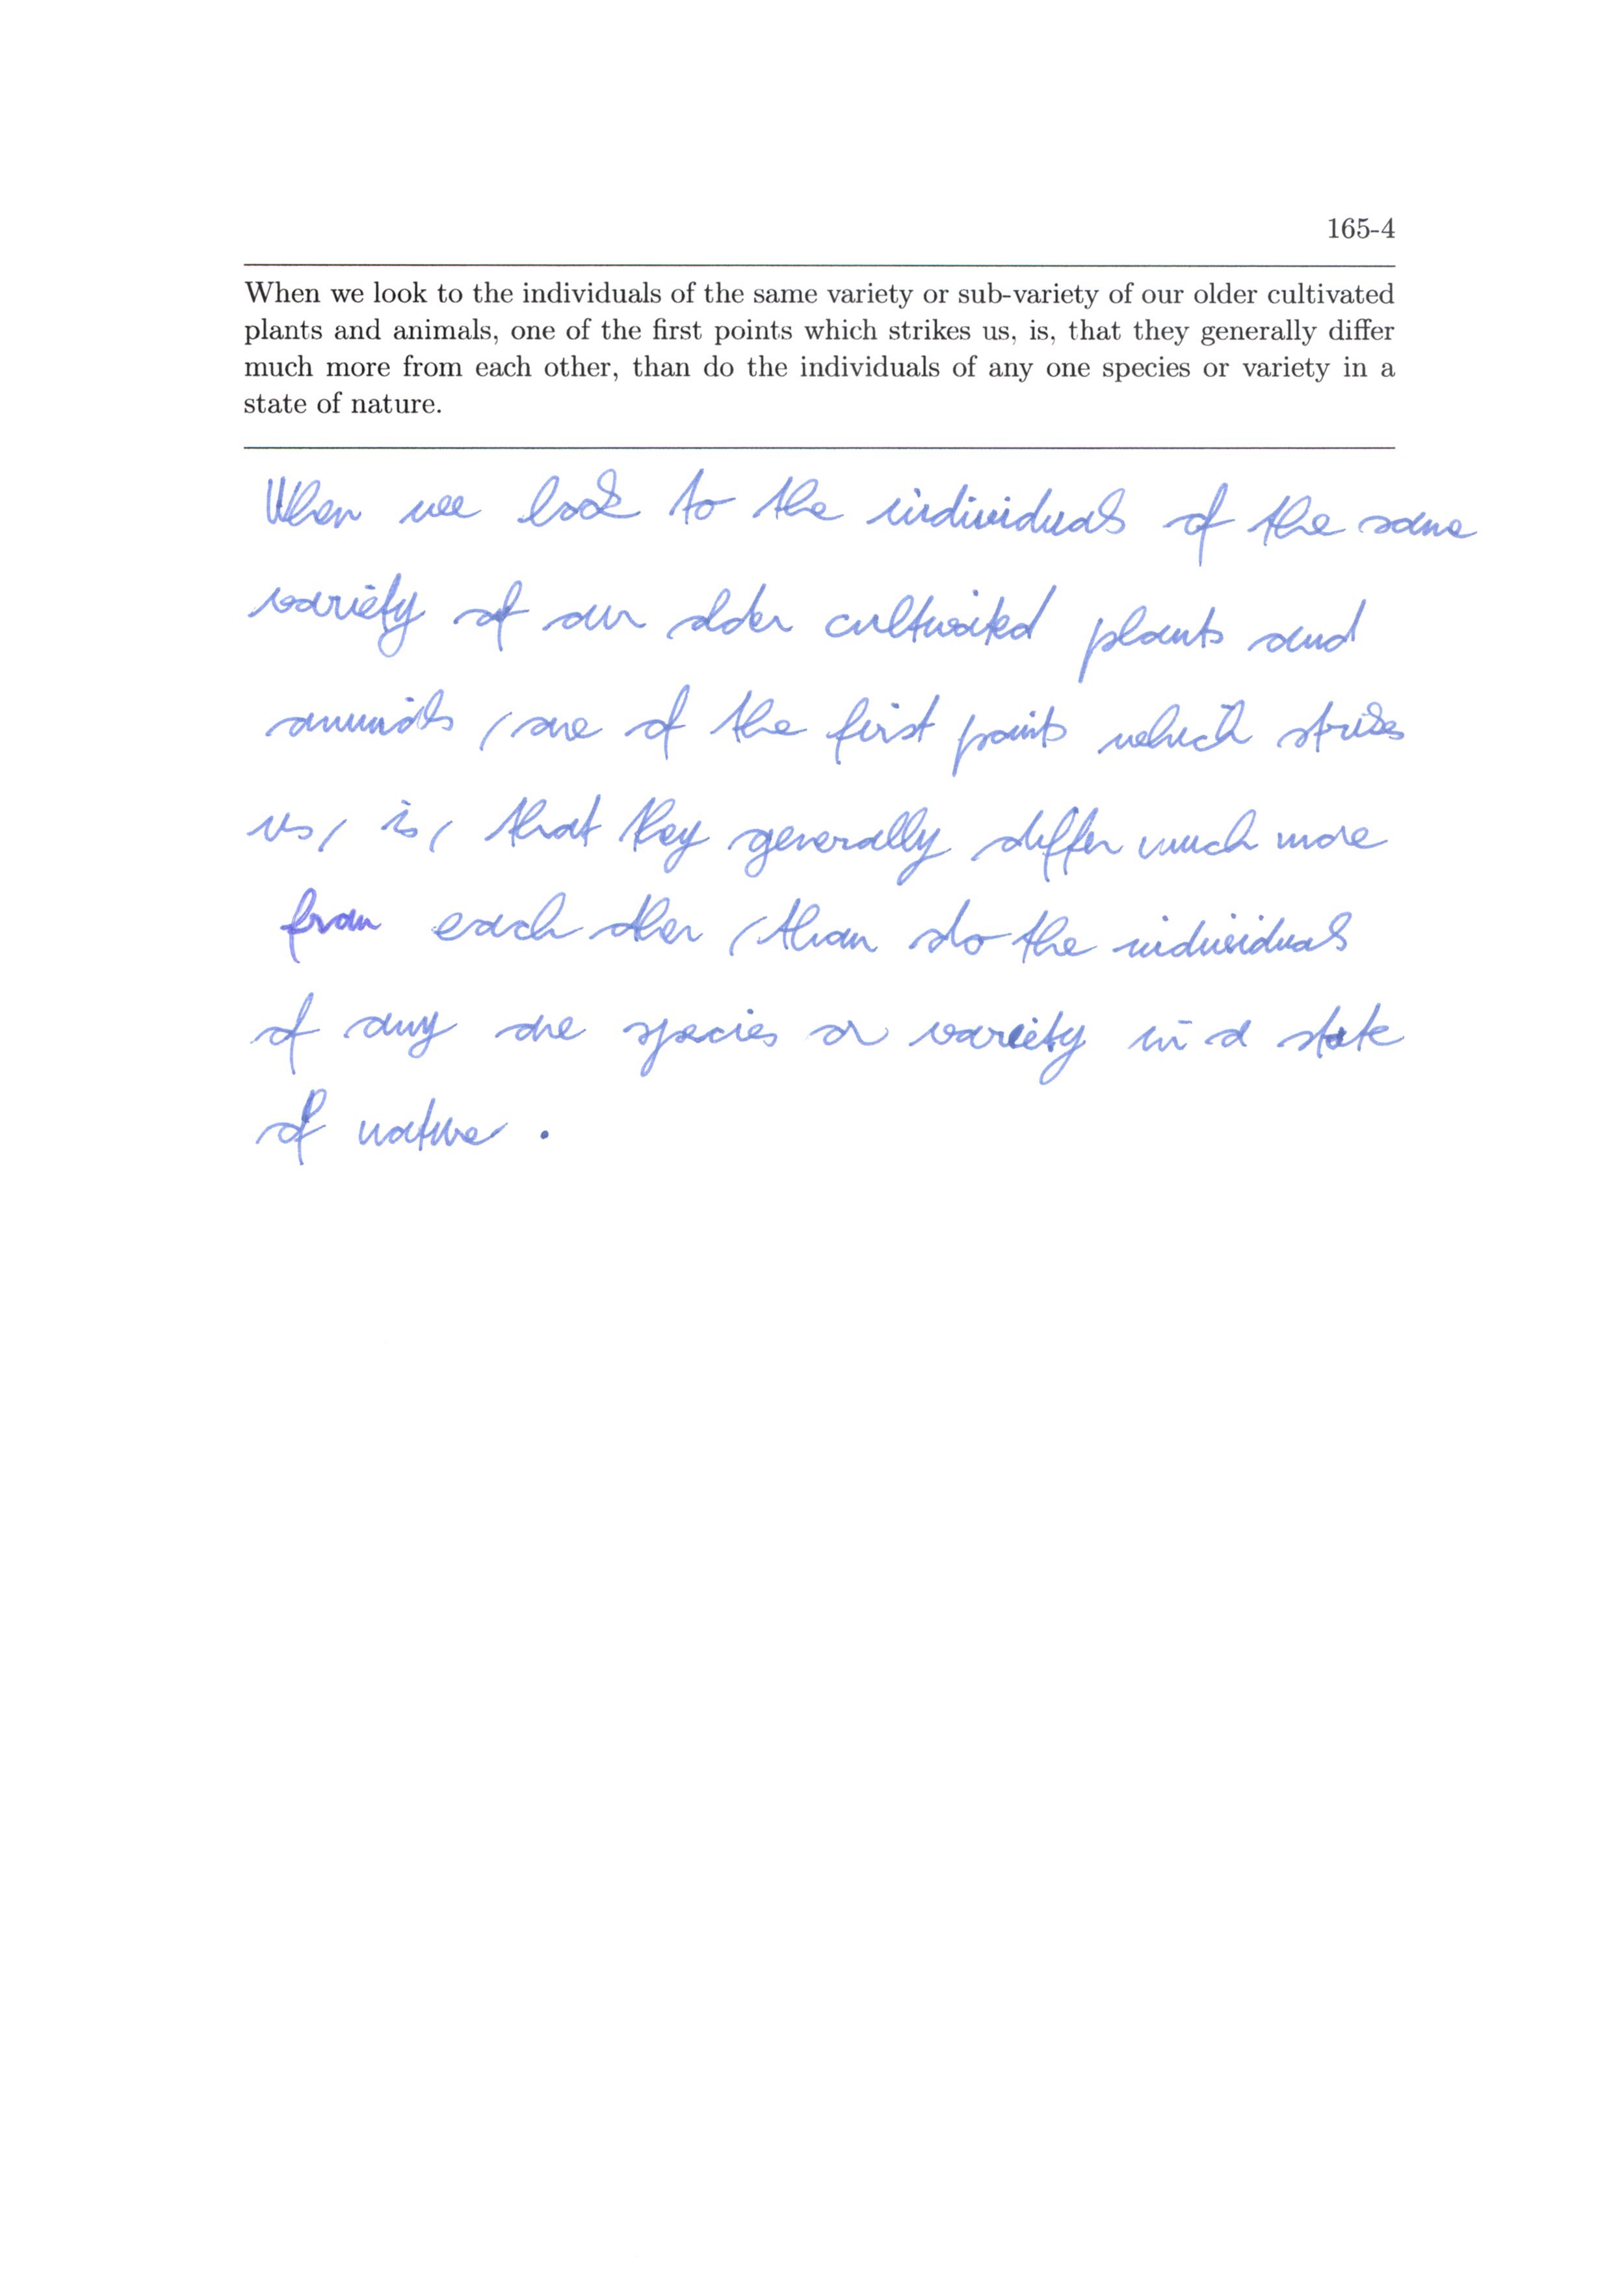 165-4
When we look to the individuals of the same variety or sub-variety of our older cultivated
plants and animals, one of the first points which strikes us, is, that they generally differ
much more from each other, than do the individuals of any one species or variety in a
state of nature.
When we look to the individuals of the same
variety of our older cultivated plants and
animals, one of the first points which strikes
us, is, that they generally differ much more
from each other, than do the individuals
of any one species or variety in a state
of nature.